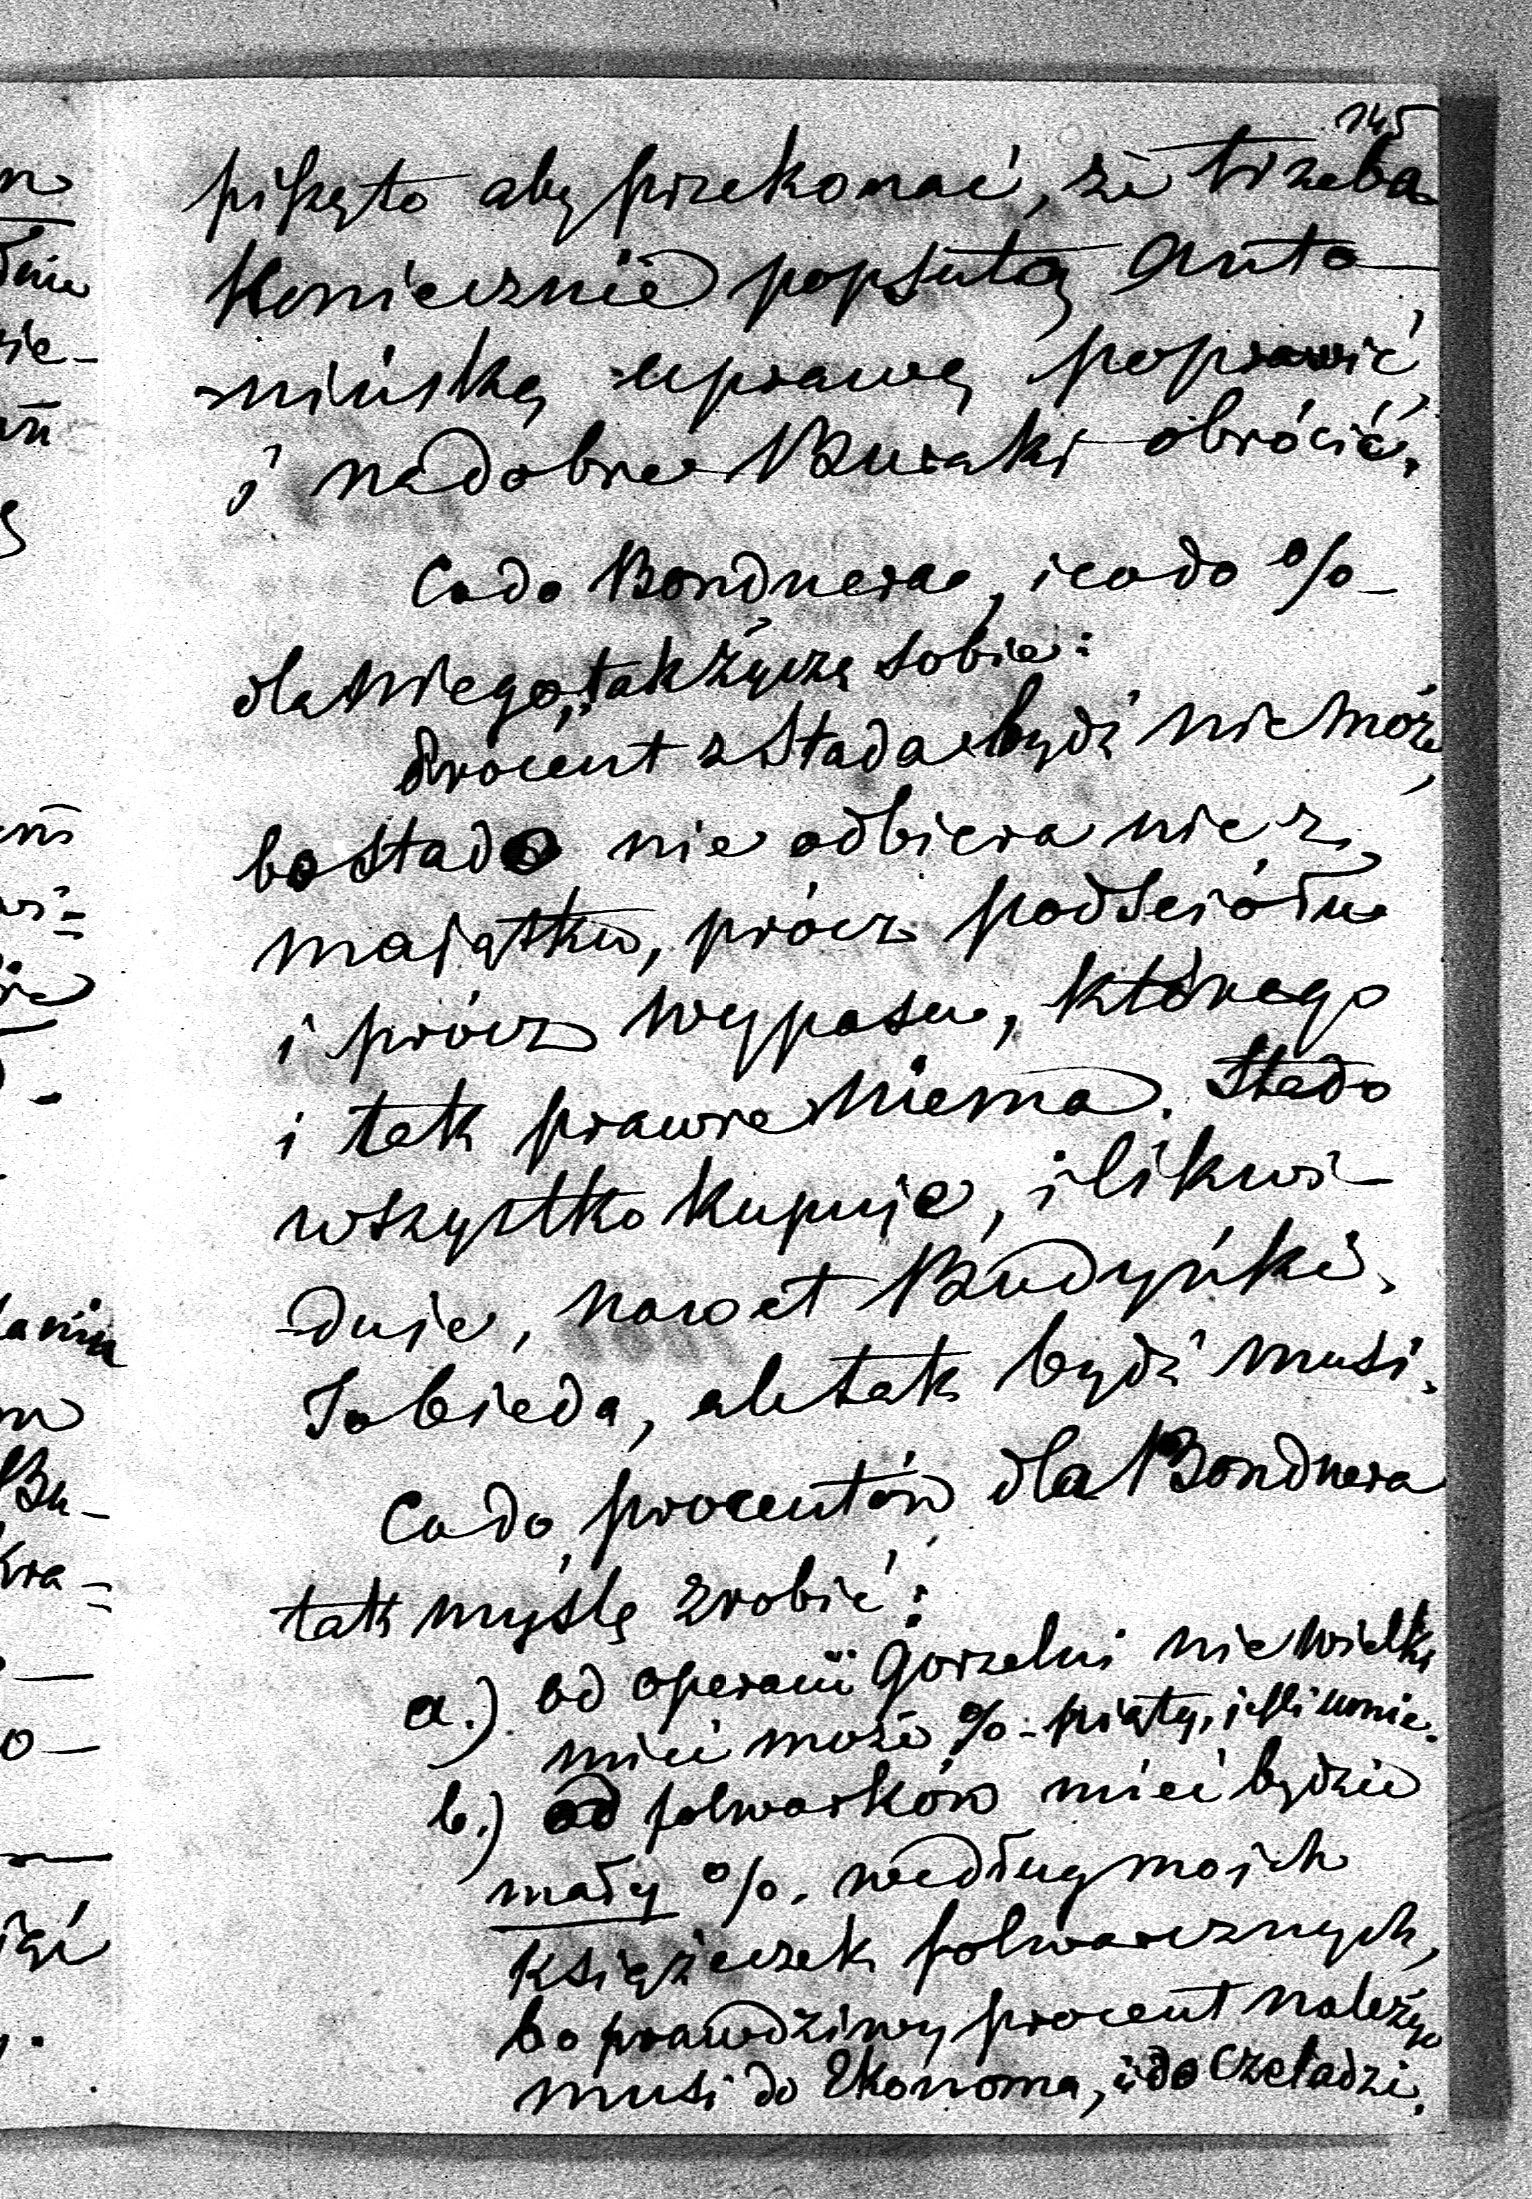 145
piszę to aby przekonać, że trzeba
koniecznie popsutą Anto-
nińską uprawę poprawić,
i na dobre Buraki obrócić.
Co do Bondnera, i co do %
dla niego, tak życzę sobie:
Procent z Stada bydź nie może,
bo Stado nie odbiera nic z
majątku, prócz podściółu
i prócz wypasu, którego
i tak prawie niema. Stado
wszystko kupuje, i likwi-
duje, nawet Budynki.
To bieda, ale tak bydź musi.
Co do procentów dla Bondnera
tak myślę zrobić:
a.) od operacii Gorzelni nie wielki
mieć może % - piąty, jeśli umie.
b.) od folwarków mieć będzie
mały %. według moich
książeczek folwarcznych,
bo prawdziwy procent należyć
musi do Ekonoma, i do czeladzi.